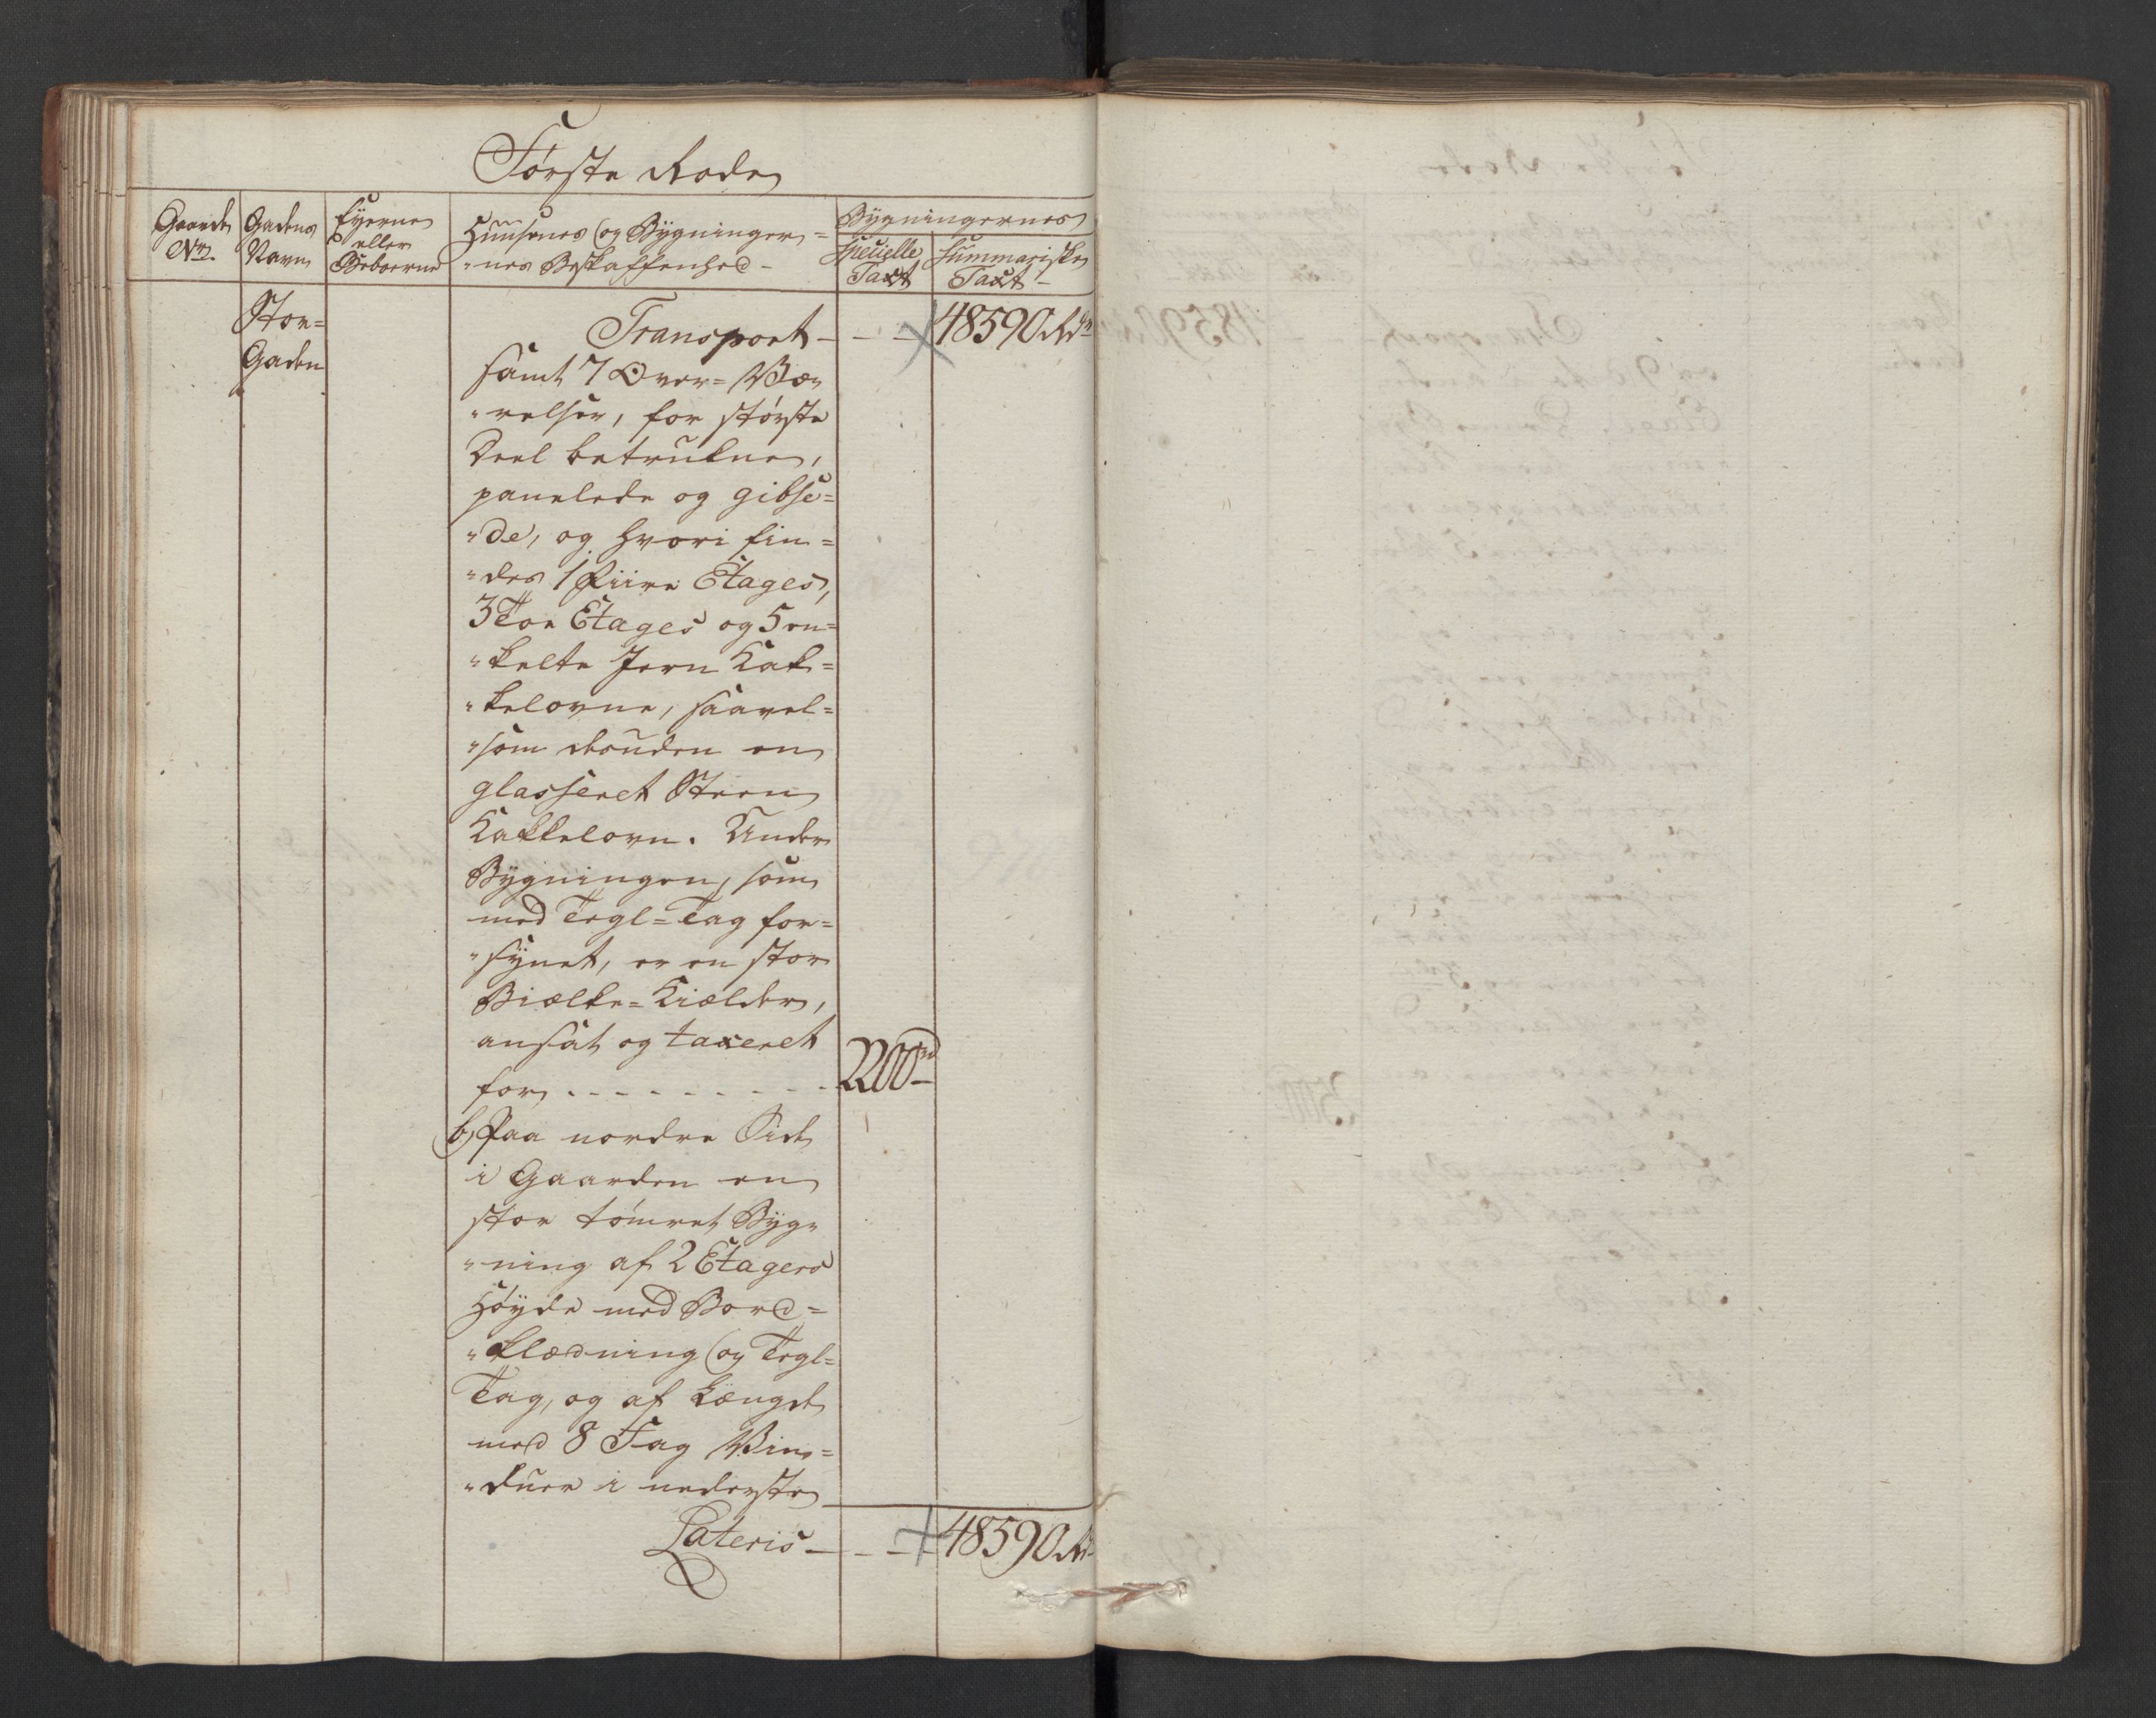 Første Rode
Gaarde Gadens Eyerne Huusenes og Bygninger= Bygningernes
No. Navn eller "nes Beskaffenhed- Specielle Summariske
Beboerne Taxt Taxt-
Stor= Transport - - - 48590 Rdr
Gaden samt 7 Over=Væ=
"relser, for største
Deel betrukne,
panelede og gibse=
"de, og hvori fin=
"des 1 Fiire Etages,
3 Toe Etages og 5 en=
"kelte Jern Kak=
"kelovne, saavel=
"som desuden en
glasseret Steen
Kakkelovn. Under
Bygningen, som
med Tegl=Tag for=
"synet, er en stor
Bielke=Kielder,
ansat og taxeret
for - - - - - - - - 2200 rd
b, Paa nordre Side
i Gaarden en
stor tømret Byg=
"ning af 2 Etagers
Høyde med Bord=
"klædning og Tegl=
Tag, og af Længde
med 8 Fag Vin=
"duer i nederste
Lateris - - - 48590 Rd